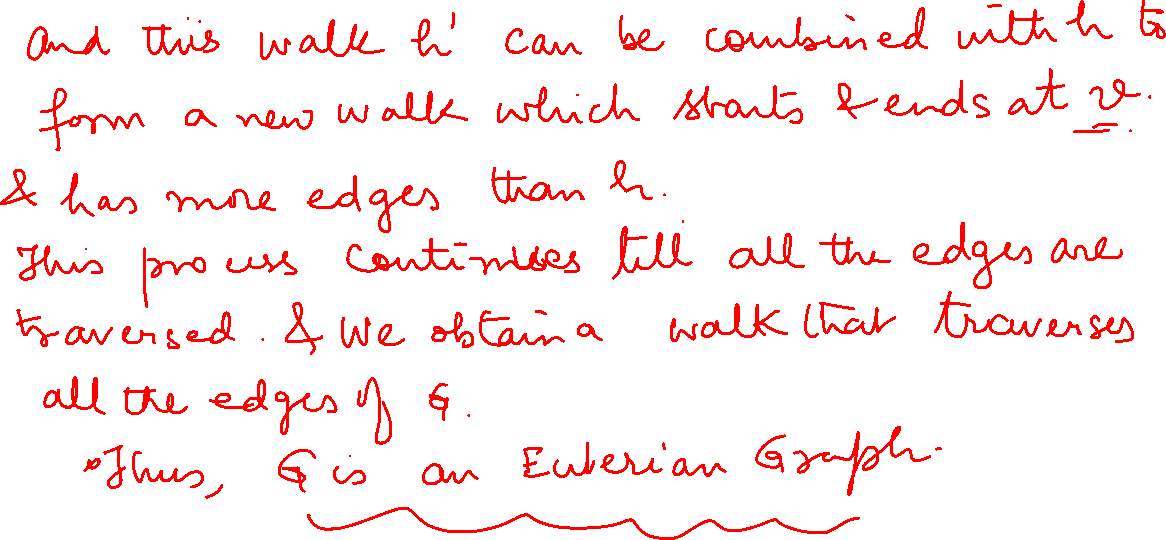 and this walk h' can be combined with h to
form a new walk which starts & ends at v.
& has more edges than h.
This process continues till all the edges are
traversed. & We obtain a walk that traverses
all the edges of G.
Thus, G is an Eulerian Graph.